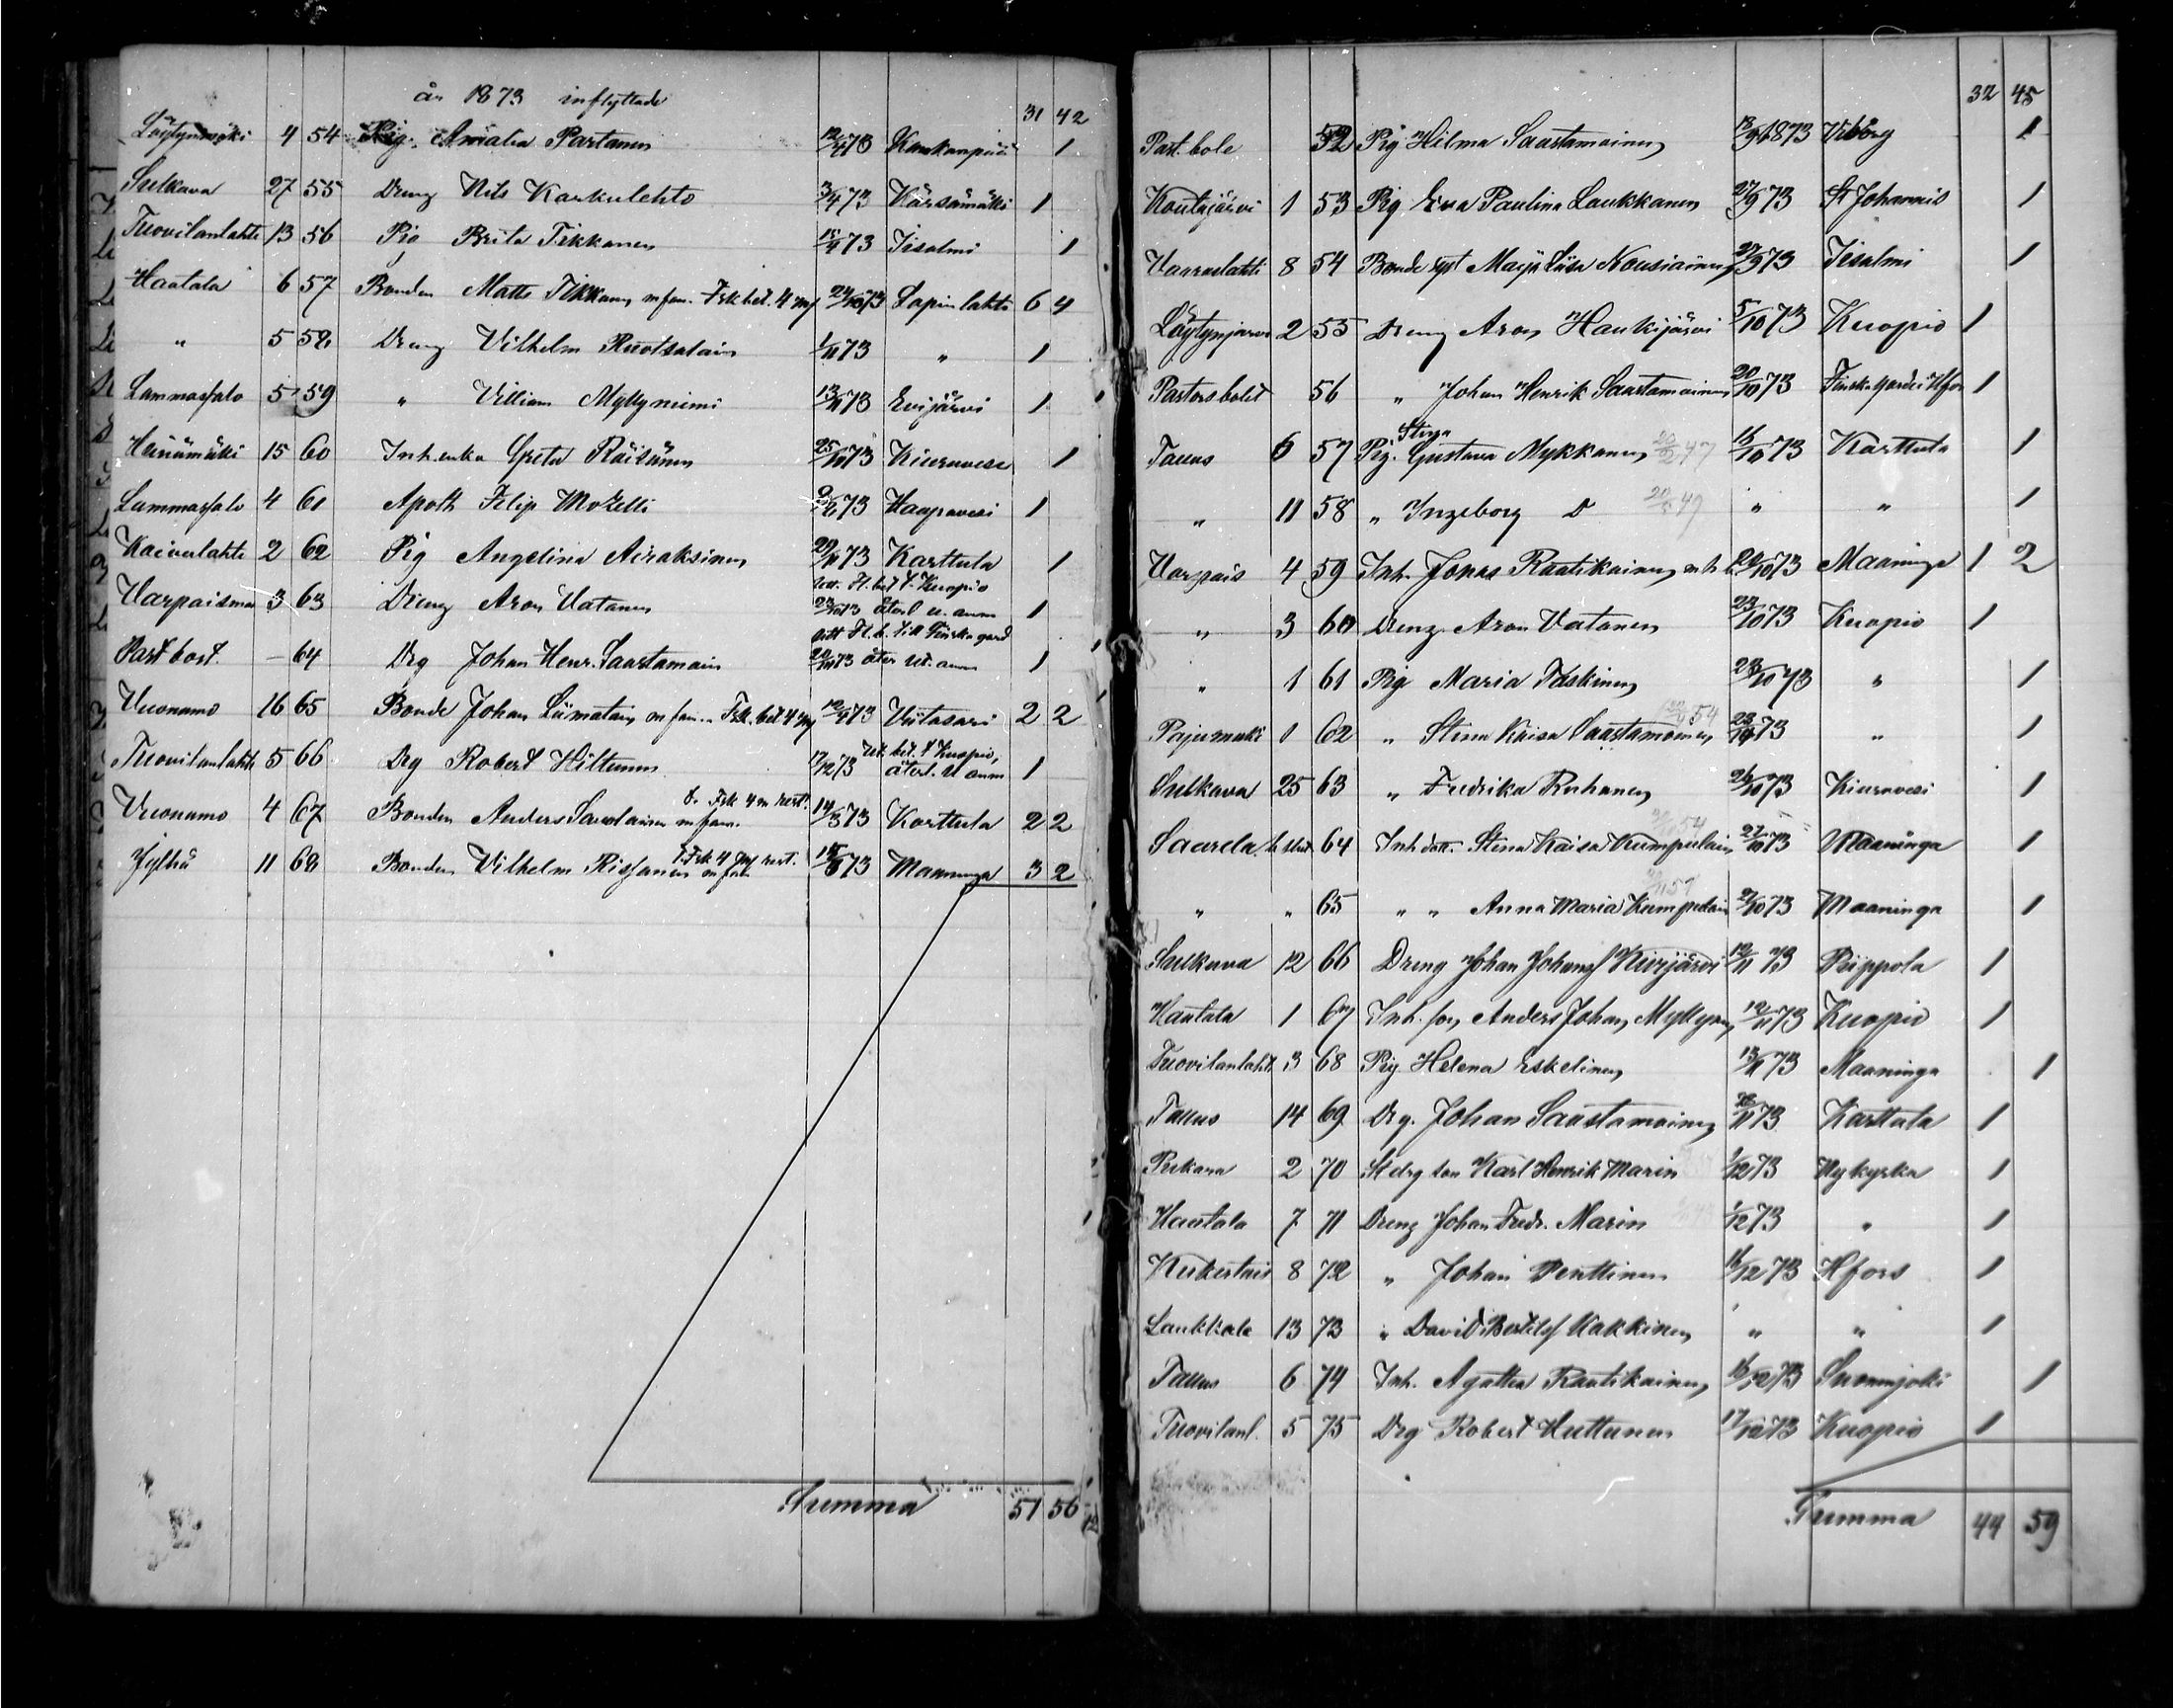 år 1873 inflyttade
31 42
Löytynmäki 4 54 Pig. Amalia Partanen 12/4 73 Kankaanpää 1
Sulkava 27 55 Dreng Nils Karkulehto 3/4 73 Kärsämäki 1
Tuovilanlahti 13 56 Pig Brita Tikkanen 15/9 73 Iisalmi 1
Hautala 6 57 Bonden Matts Tikkanen m fam. Frkbet. 4 mg 24/10 73 Lapinlahti 6 4
" 5 58 Dreng Vilhelm Ruotsalain 1/11 73 " 1
Lammassalo 5 59 " Villiam Myllyniemi 13/11 73 Evijärvi 1
Heinämäki 15 60 Inh. enka Greta Räisänen 25/11 73 Kiuruvesi 1
Lammassalo 4 61 Apoth Filip Mozelli 73 Haapavesi 1
Kaiverlahti 2 62 Pig Angelina Airaksinen 29/11 73 Karttula 1
Varpaisma 3 63 Dreng Aron Vatanen Utt. Fl. bet t. Kuopio 23/10 73 återl u. anm 1
Past. bost. – 64 Drg Johan Henr. Saastamoin utt Fl. b. till Finska gard 20/10 73 åter ut. anm 1
Vuonamo 16 65 Bonde Johan Liimatain m fam. Frk. bet 4 mg 12/9 73 Viitasari 2 2
Tuovilanlahti 5 66 Drg Robert Hiltunen 17/12 73 Utt. bet. t Kuopio, återl. U anm 1
Vuonamo 4 67 Bonden Anders Savolainen m fam. b. Frk 4 m rest. 14/3 73 Karttula 2 2
Jylhä 11 68 Bonden Vilhelm Rissanen m fam b. Frk 4 mg rest. 15/8 73 Maaninga 3 2
Summa 51 56
32 45
Past. bole 52 Pig Hilma Saastamoinen 1873 Viborg 1
Koutajärvi 1 53 Pig Eva Paulina Laukkanen 27/9 73 St Johannis 1
Vaaraslahti 8 54 Bonde dget Maija Liisa Nousiainen 27/9 73 Iisalmi 1
Löytynjärvi 2 55 Dreng Aron Haukijärvi 5/10 73 Kuopio 1
Pastorsbolet 56 " Johan Henrik Saastamoinen 20/10 73 Finska gardet Hfors 1
Tallus 6 57 Pig. Stina Gustava Mykkänen 47 16/10 73 Karttula 1
" 11 58 " Ingeborg D 49 " " 1
Varpais 4 59 Inh. Jonas Rautikainen m h 20/10 73 Maaninga 1 2
" 3 60 Dreng Aron Vatanen 23/10 73 Kuopio 1
" 1 61 Pig Maria Edskinen 23/10 73 " 1
Pajumäki 1 62 " Stina Kaisa Saastamoinen 54 23/10 73 " 1
Sulkava 25 63 " Fredrika Ruhanen 26/10 73 Kiuruvesi 1
Saarela 64 Inh dott. Stina Kaisa Kumpulain 54 27/10 73 Maaninga 1
" " 65 " " Anna Maria Kumpulain 57 27/10 73 Maaninga 1
Sulkava 12 66 Dreng Johan Johanss Kivijärvi 12/11 73 Piippola 1
Hautala 1 67 Inh. son Anders Johan Mykkänen 12/11 73 Kuopio 1
Tuovilanlaht 3 68 Pig Helena Eskelinen 13/11 73 Maaninga 1
Tallus 14 69 Drg. Johan Saastamoinen /11 73 Karttula 1
Pirkana 2 70 St drg son Karl Henrik Marin 1/12 73 Nykyrka 1
Hautala 7 71 Dreng Johan Fredr. Marin 1/12 73 " 1
Kukertais 8 72 " Johan Penttinen 16/12 73 Hfors 1
Laukkala 13 73 " David Bertils Kakkinen " " 1
Tallus 6 74 Inh. Agatha Rautikainen 16/12 73 Suonenjoki 1
Tuovilanl. 5 75 Drg Robert Huttunen 17/12 73 Kuopio 1
Summa 44 59